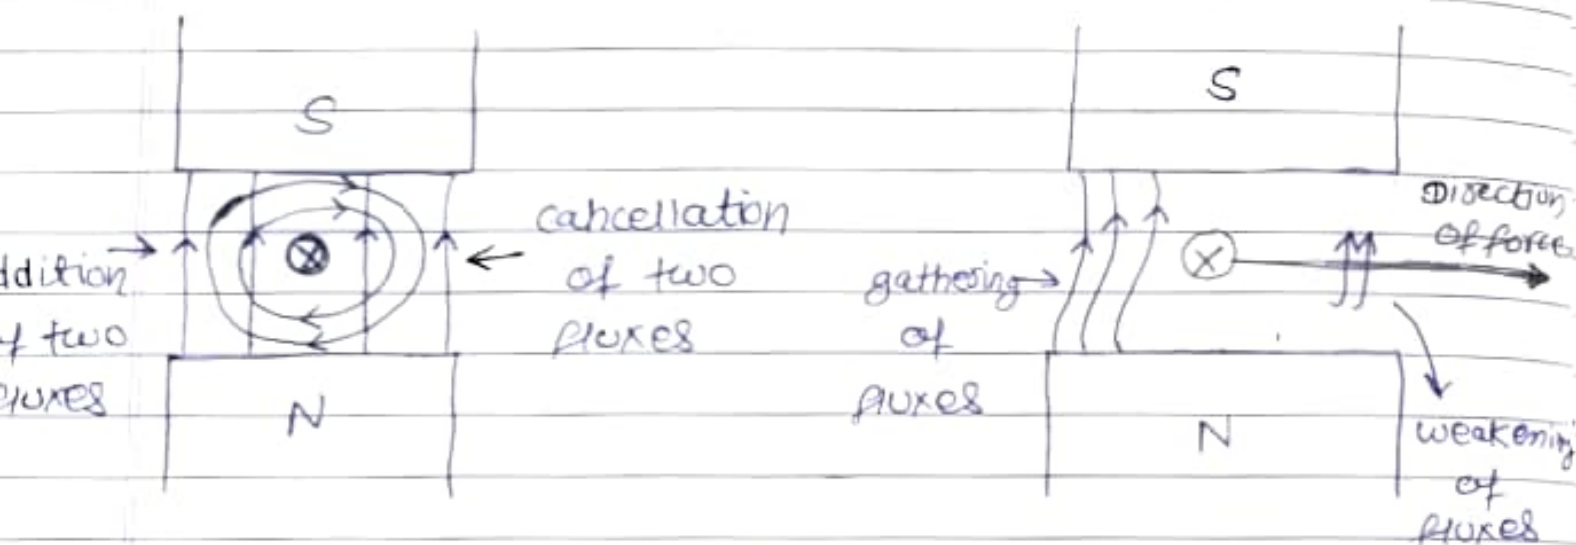 S
ddition
f two
fluxes
cancellation
of two
fluxes
N
S
gathering
of
fluxes
Direction
of force
N
weakening
of
fluxes